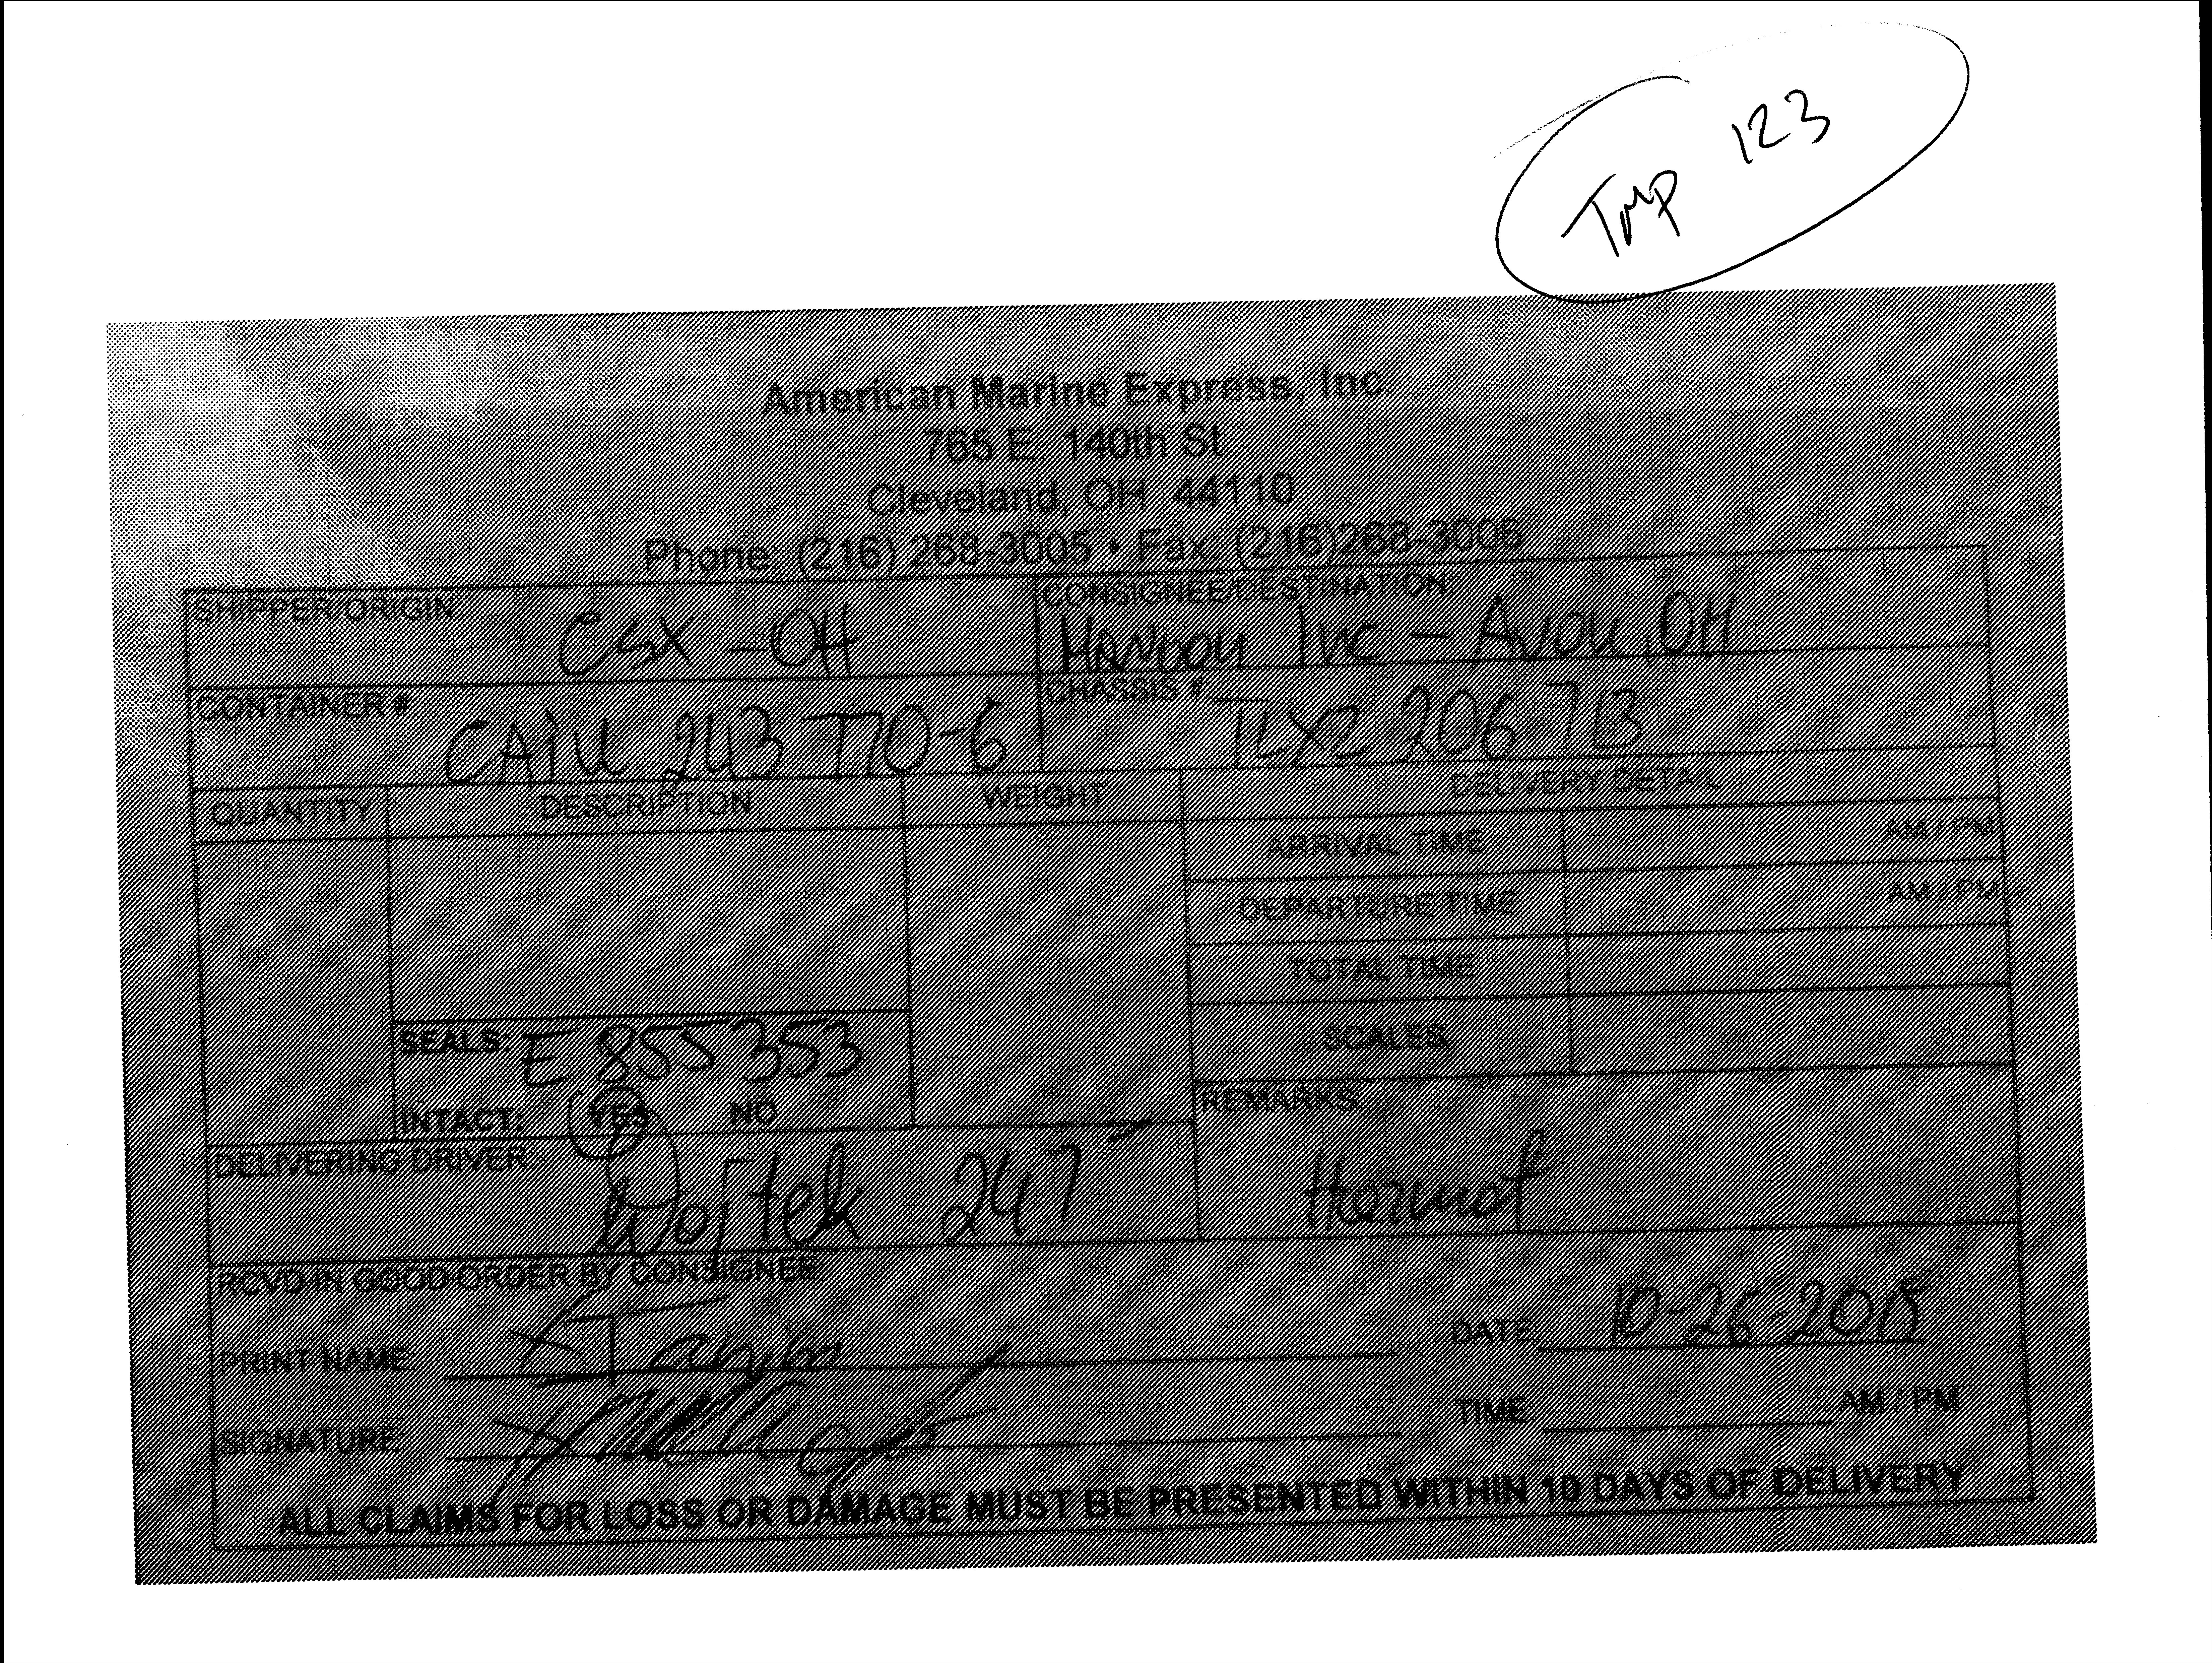 Tmp 123
American Marine Express, Inc.
765 E. 140th St
Cleveland, OH 44110
Phone: (216) 268-3005 • Fax: (216)268-3006
SHIPPER/ORIGIN: CSX - OH
CONSIGNEE/DESTINATION: Inc - Avon, OH
CONTAINER # CAIU 243 770-6
CHASSIS #:
QUANTITY DESCRIPTION WEIGHT DELIVERY DETAIL
ARRIVAL TIME AM / PM
DEPARTURE TIME AM / PM
TOTAL TIME
SEALS: E 855353
SCALES
INTACT: YES NO
REMARKS:
DELIVERING DRIVER: Wojtek 247
RCVD IN GOOD ORDER BY CONSIGNEE:
PRINT NAME:
DATE: 10-26-2018
SIGNATURE:
TIME: AM / PM
ALL CLAIMS FOR LOSS OR DAMAGE MUST BE PRESENTED WITHIN 10 DAYS OF DELIVERY